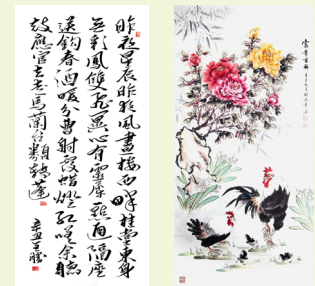 昨夜星辰昨夜風畫樓西畔桂堂東身
無彩鳳雙飛翼心有靈犀一點通隔座
送鉤春酒暖分曹射覆蠟燈紅嗟余聽
鼓應官去走馬蘭台類轉蓬
辛丑